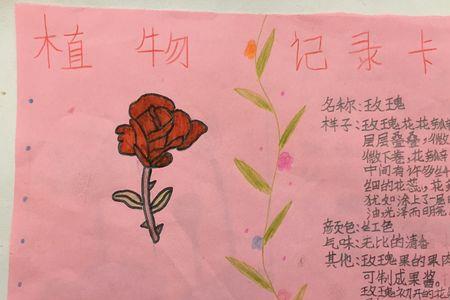 植物记录卡
名称:玫瑰
样子:玫瑰花花瓣
层层叠叠,微
微下卷,花瓣
中间有许多丝
细的花蕊,花
犹如涂上了一层
油光泽而明亮
颜色:红色
气味:无比的清香
其他:玫瑰果的果肉
可制成果酱。
玫瑰初开的花